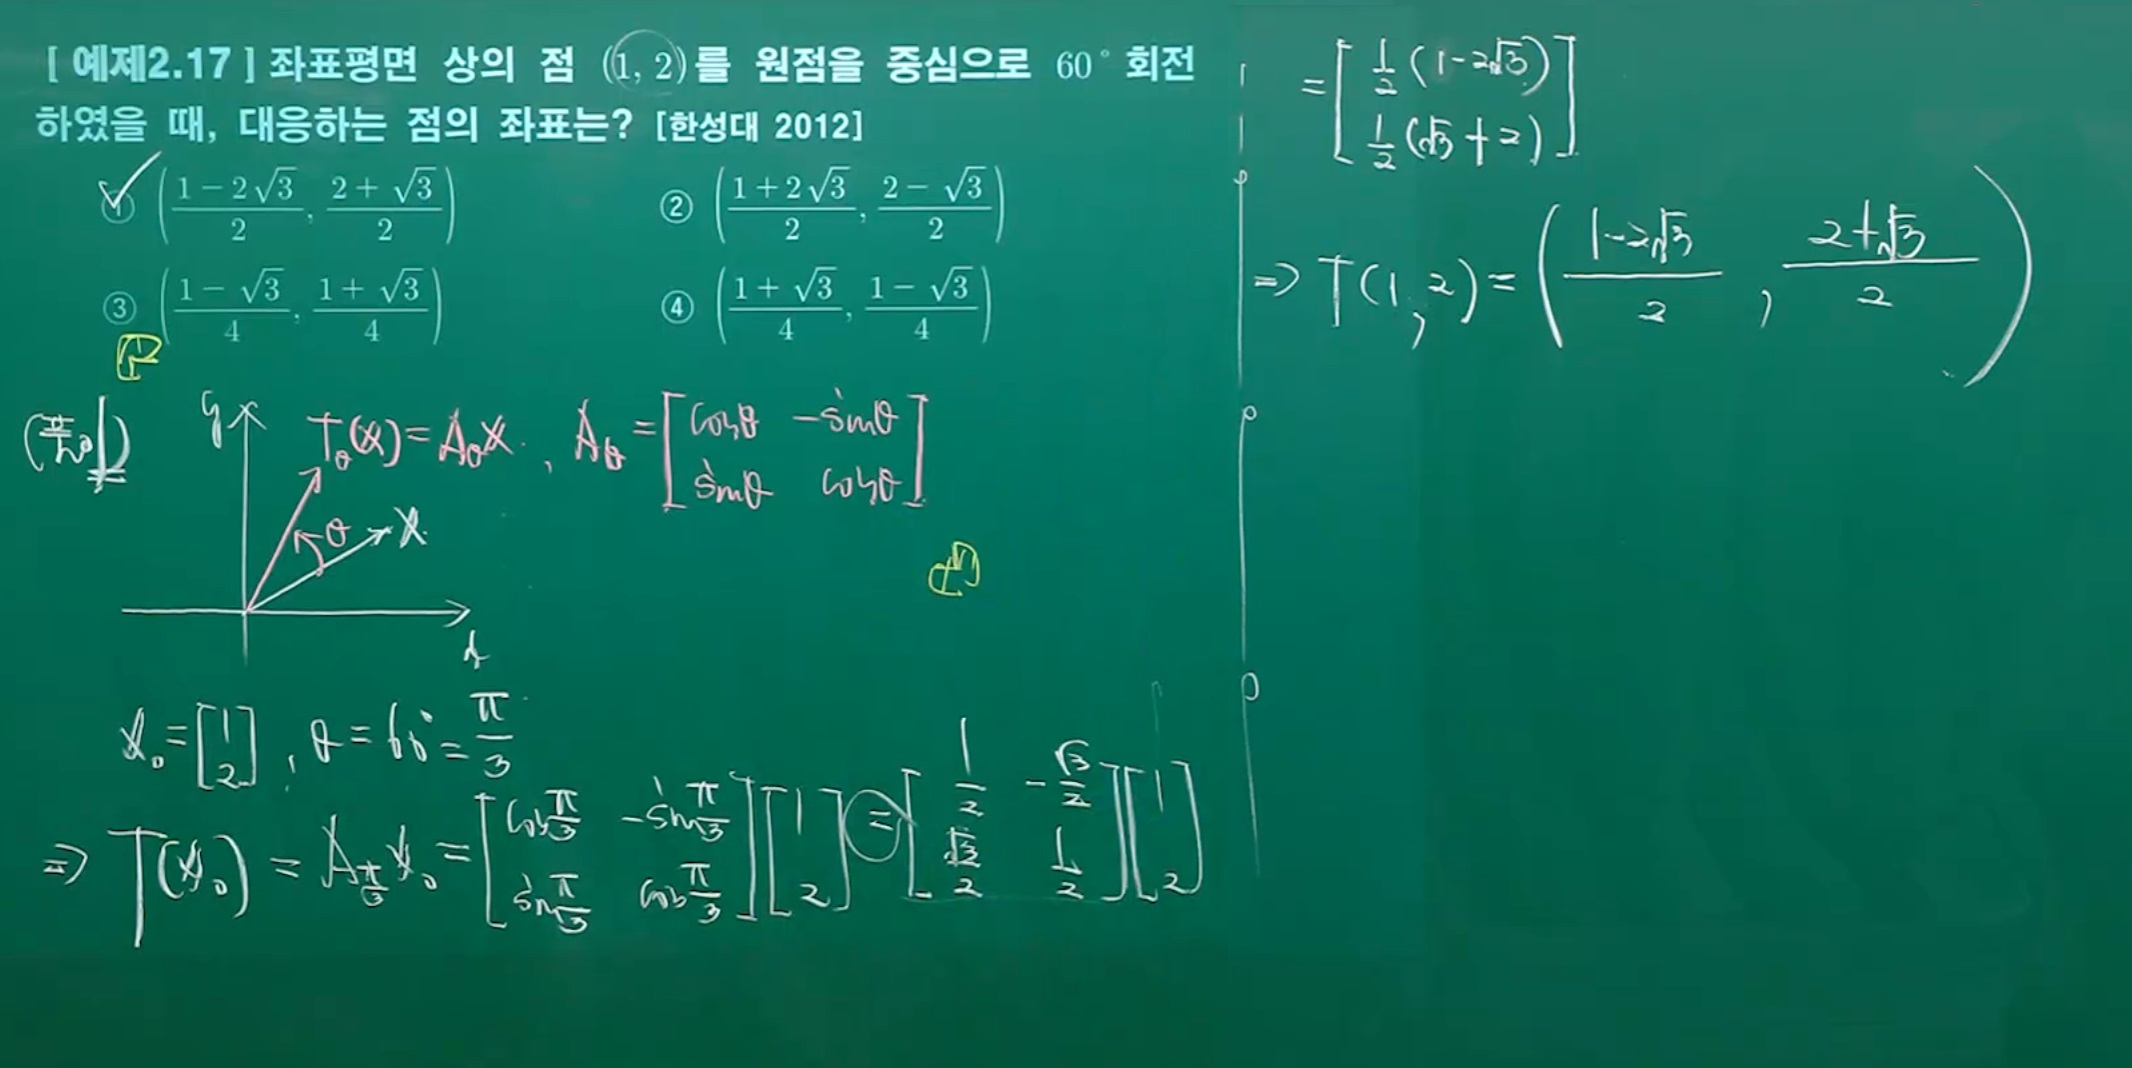 [ 예제2.17 ] 좌표평면 상의 점 (1, 2)를 원점을 중심으로 60° 회전
하였을 때, 대응하는 점의 좌표는? [한성대 2012]
① ((1-2√3)/2, (2+√3)/2) ② ((1+2√3)/2, (2-√3)/2)
③ ((1-√3)/4, (1+√3)/4) ④ ((1+√3)/4, (1-√3)/4)
(풀이)
y
T_θ(x) = A_θ x , A_θ = [cosθ -sinθ
sinθ cosθ]
θ
x
x
x₀ = [1
2] , θ = 60° = π/3
⇒ T(x₀) = A_(π/3) x₀ = [cos π/3 -sin π/3
sin π/3 cos π/3] [1
2] = [1/2 -√3/2
√3/2 1/2] [1
2]
= [1/2 (1-2√3)
1/2 (√3+2)]
⇒ T(1, 2) = ((1-2√3)/2 , (2+√3)/2)